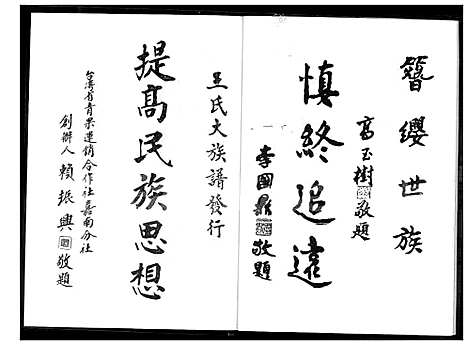 簪纓世族
高玉樹敬題
慎終追遠
李國鼎敬題
王氏大族譜發行
提高民族思想
台灣省青果運銷合作社嘉南分社
創辦人賴振興敬題